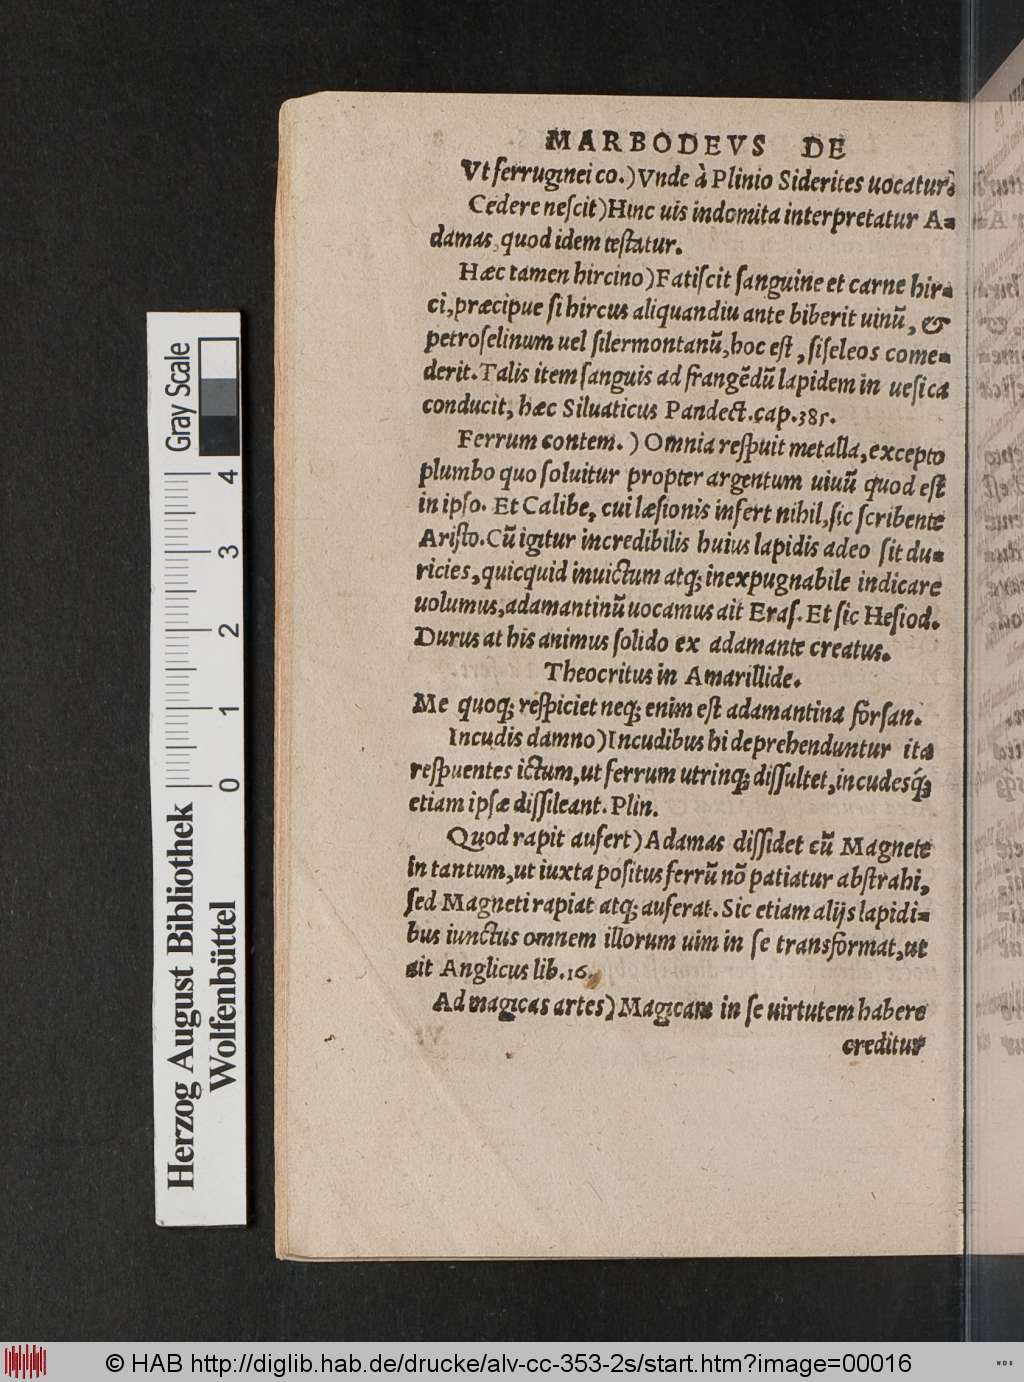 MARBODEVS DE
Vt ferruginei co.) Vnde à Plinio Siderites uocatur.
Cedere neſcit) Hinc uis indomita interpretatur A=
damas, quod idem teſtatur.
Hæc tamen hircino) Fatiſcit ſanguine et carne hir=
ci, præcipue ſi hircus aliquandiu ante biberit uinũ, &
petroſelinum uel ſilermontanũ, hoc eſt, ſiſeleos come=
derit. Talis item ſanguis ad frangẽdũ lapidem in ueſica
conducit, hæc Siluaticus Pandect. cap. 385.
Ferrum contem.) Omnia reſpuit metalla, excepto
plumbo quo ſoluitur propter argentum uiuũ quod eſt
in ipſo. Et Calibe, cui læſionis infert nihil, ſic ſcribente
Ariſto. Cũ igitur incredibilis huius lapidis adeo ſit du=
ricies, quicquid inuictum atq; inexpugnabile indicare
uolumus, adamantinũ uocamus ait Eraſ. Et ſic Heſiod.
Durus at his animus ſolido ex adamante creatus.
Theocritus in Amarillide.
Me quoq; reſpiciet neq; enim eſt adamantina forſan.
Incudis damno) Incudibus hi deprehenduntur ita
reſpuentes ictum, ut ferrum utrinq; diſſultet, incudesq́;
etiam ipſæ diſſileant. Plin.
Quod rapit aufert) Adamas diſſidet cũ Magnete
in tantum, ut iuxta poſitus ferrũ nõ patiatur abſtrahi,
ſed Magneti rapiat atq; auferat. Sic etiam alijs lapidi=
bus iunctus omnem illorum uim in ſe transformat, ut
ait Anglicus lib. 16.
Ad magicas artes) Magicam in ſe uirtutem habere
creditur
Gray Scale
4
3
2
1
0
Herzog August Bibliothek
Wolfenbüttel
© HAB http://diglib.hab.de/drucke/alv-cc-353-2s/start.htm?image=00016